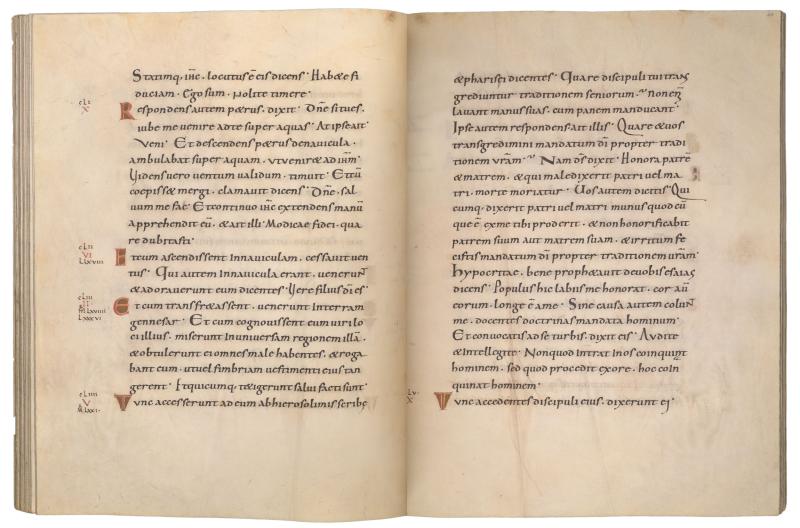 Statimq· ihc· locutus ē eis dicens· Habete fi
duciam· Ego sum· Nolite timere·
cLI
X
Respondens autem petrus· dixit· Dn̄e si tu es·
iube me venire ad te super aquas· At ipse ait
Veni· Et descendens petrus de navicula·
ambulabat super aquam· ut veniret ad ihm̄·
Videns uero uentum validum· timuit· Et cū
coepisset mergi· clamavit dicens· Dn̄e· sal
uum me fac· Et continuo ihc extendens manū
Apprehendit eū· & ait illi· Modicae fidei· qua
re dubitasti·
cLII
VI
LLxviii
Et cum ascendissent in naviculam· cessavit ven
tus· Qui autem in navicula erant· venerunt
& adoraverunt eum dicentes· Vere filius dī es·
cLIII
II
MLxviiii
LLxxvi
Et cum transfretassent· venerunt in terram
gennesar· Et cum cognovissent eum viri lo
ci illius· miserunt in universam regionem illā·
& obtulerunt ei omnes male habentes· & roga
bant eum· ut vel fimbriam vestimenti eius tan
gerent· Et quicumq· tetigerunt salui facti sunt·
cLIIII
V
MLxxi·
Tunc accesserunt ad eum ab hierosolimis scribę
& pharisei dicentes· Quare discipuli tui trans
grediuntur traditionem seniorum· non enim
lavant manus suas· cum panem manducant·
Ipse autem respondens ait illis· Quare & vos
transgredimini mandatum dī propter tradi
tionem vram̄· Nam ds̄ dixit· Honora patrē
& matrem· & qui maledixerit patri vel ma
tri· morte moriatur· Vos autem dicitis· Qui
cumq· dixerit patri vel matri munus quod cū
que ē ex me tibi proderit· & non honorificabit
patrem suum aut matrem suam· & irritum fe
cistis mandatum dī propter traditionem vram̄·
hypocritae· bene prophetavit de vobis esaias
dicens· Populus hic labiis me honorat· cor aū
eorum· longe ē a me· Sine causa autem colunt
me· docentes doctrinas mandata hominum·
Et convocatis ad se turbis· dixit eis· Audite
& intellegite· Non quod intrat in os coinquinat
hominem· sed quod procedit ex ore· hoc coin
quinat hominem·
Lv·
X
Tunc accedentes discipuli eius· dixerunt ei·